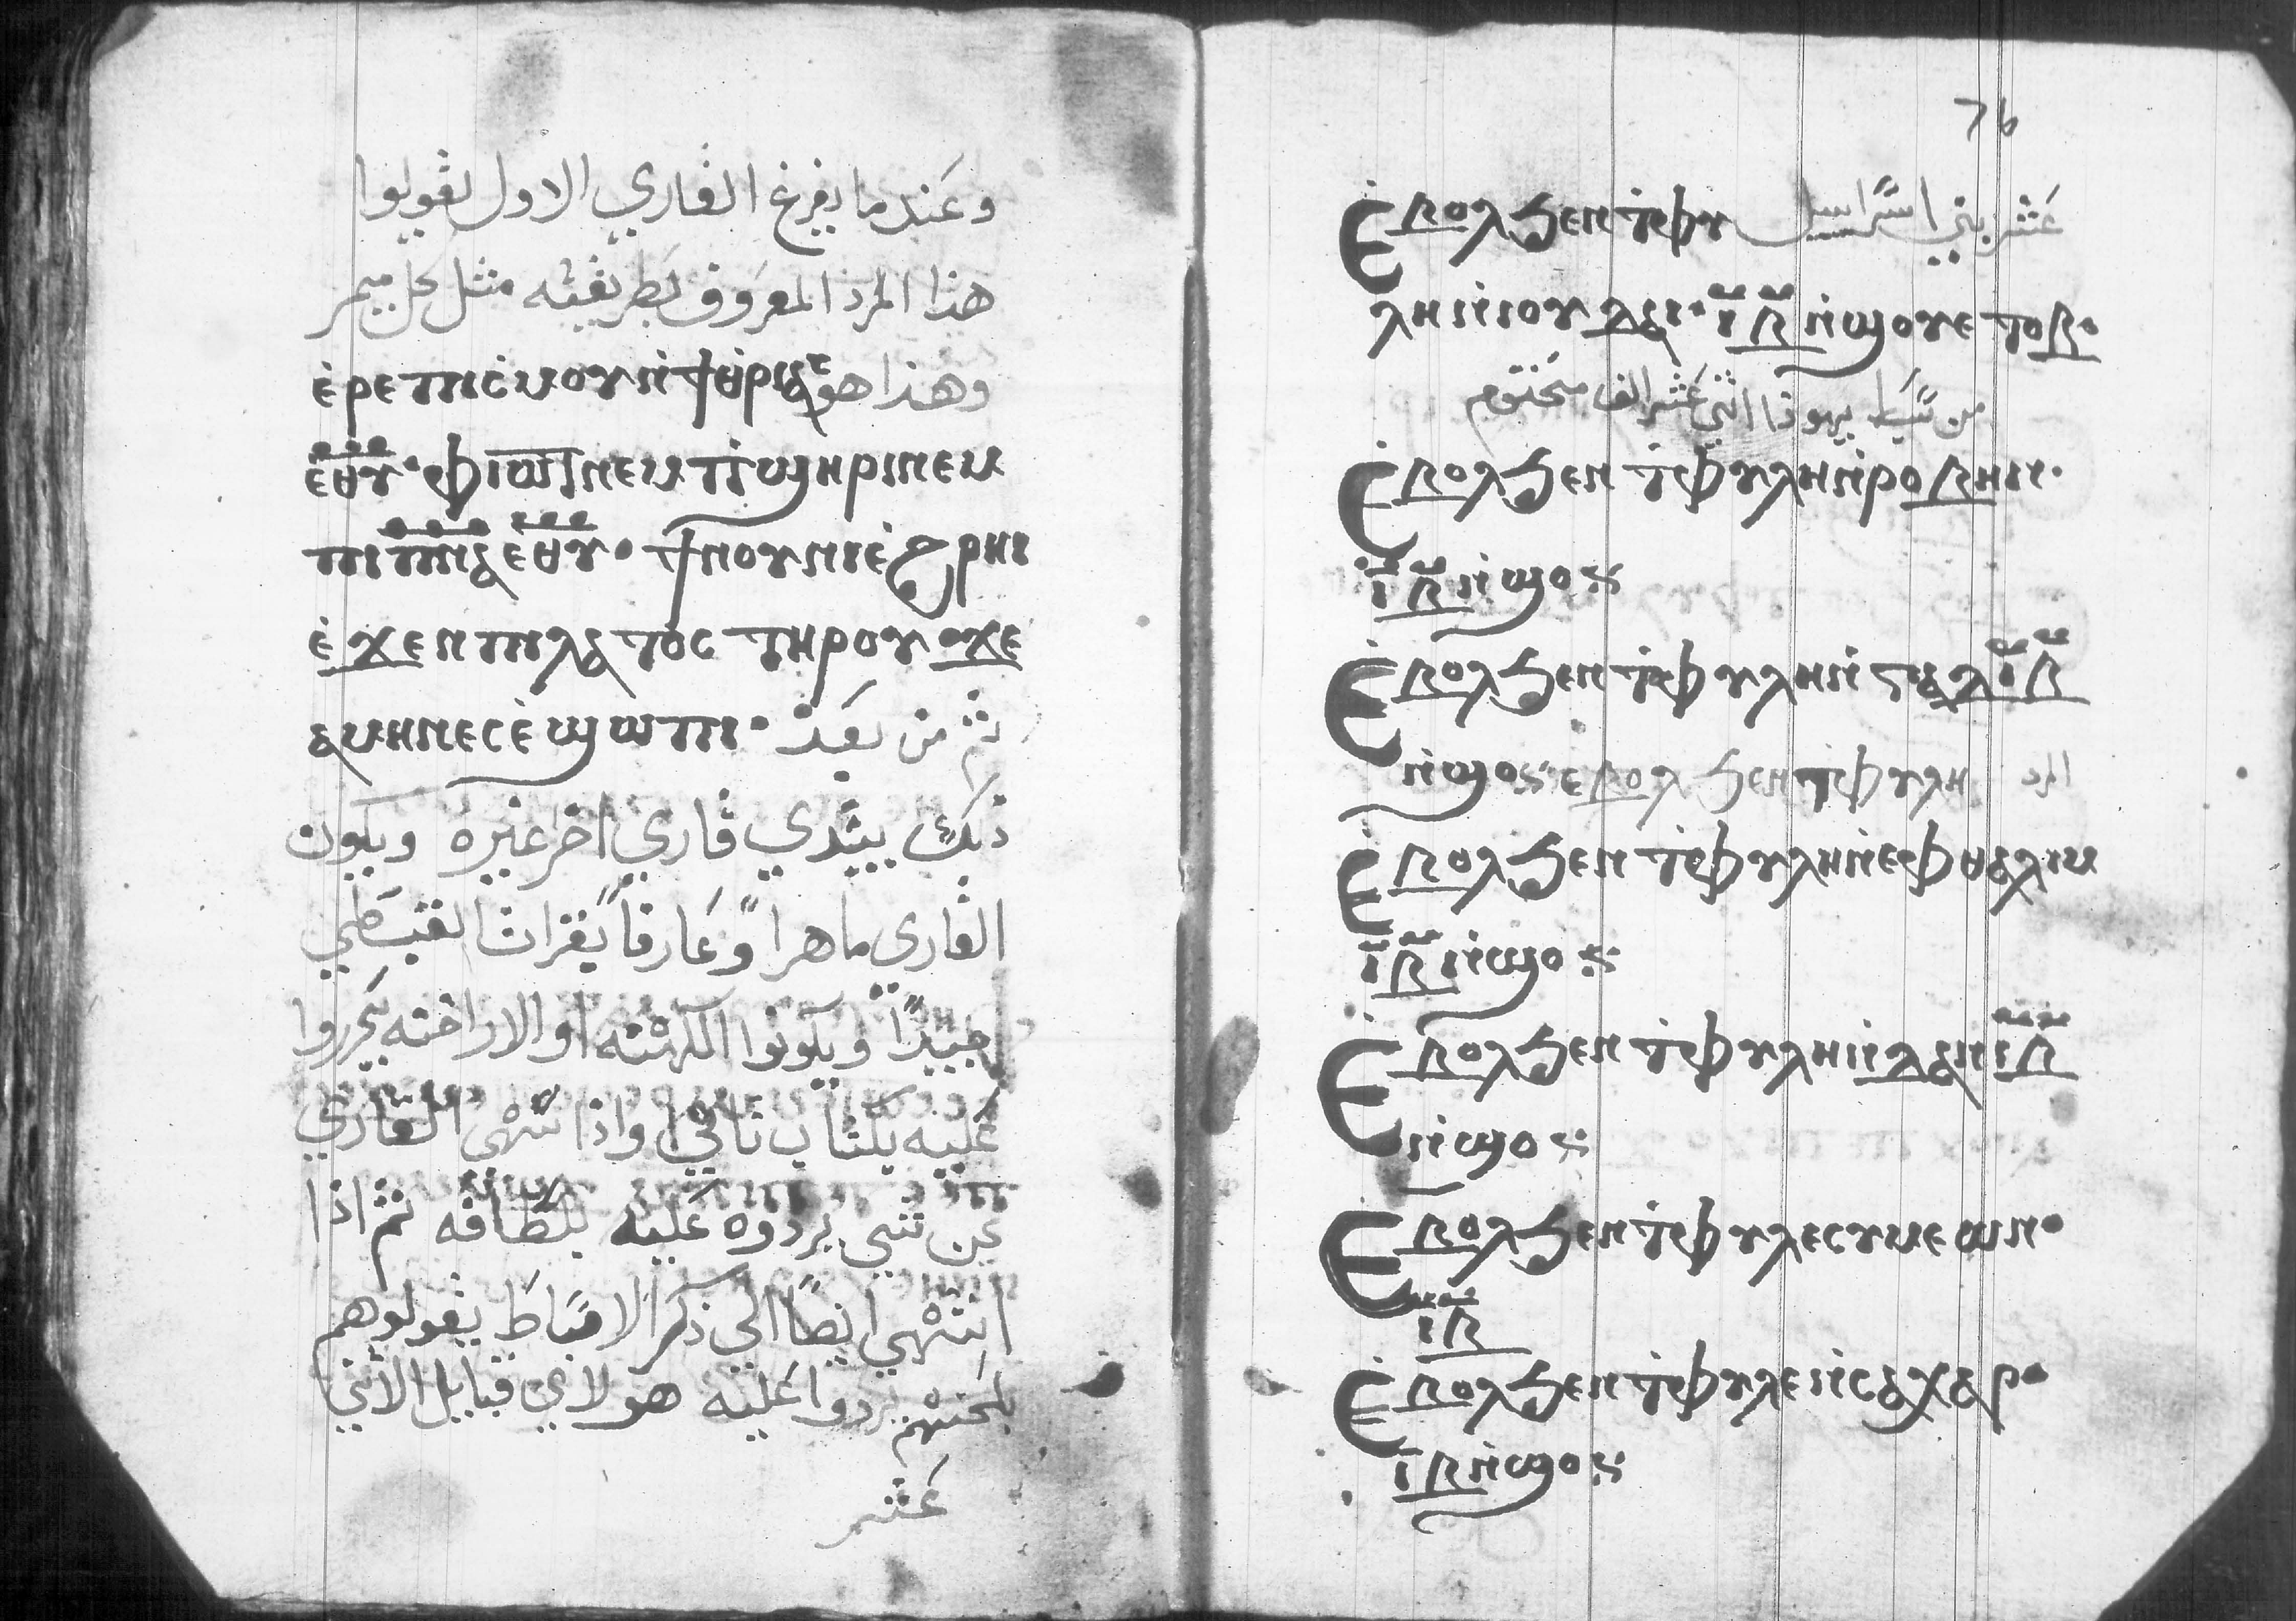 وعندما يفرغ القاري الاول يقولوا
هذا المرد المعروف بطريقته مثل كل ميمر
وهذا هو ⲉ̀ⲣⲉⲡⲓⲥⲙⲟⲩ ⲛ̀ϯⲑ̀ⲣⲓⲁⲥ
ⲉⲑⲩ· ⲫⲓⲱⲧ ⲛⲉⲙ ⲡ̀ϣⲏⲣⲓ ⲛⲉⲙ
ⲡⲓⲡⲛⲁ ⲉⲑⲩ· ϯⲛⲟⲩ ⲛⲓⲉ̀ϩⲣⲏⲓ
ⲉ̀ϫⲉⲛ ⲡⲓⲗⲁⲧⲟⲥ ⲧⲏⲣⲟⲩ ϫⲉ
ⲁⲙⲏⲛ ⲉⲥⲉ̀ϣⲱⲡⲓ· ثم من بعد
ذلك يبتدي قاري اخر غيره ويكون
القاري ماهرا وعارفا بقرات القبطي
جيدا ويكونوا الكهنه او الاراخنه يحرروا
عليه بكتاب تاني واذا تتهى القاري
عن شي يردوه عليه بلطافه ثم اذا
انتهي ايضا الي ذكر الاسباط يقولوهم
بلحنهم يردوا عليه هولاي قبايل الاثني
عشر
76
عشر بني اسراييل ⲉ̀ⲃⲟⲗ ϧⲉⲛ ⲧ̀ⲫⲩ
ⲗⲏ ⲛ̀ⲓⲟⲩⲇⲁ· ⲓⲃ ⲛ̀ϣⲟ ⲩⲉ ⲧⲟⲃ·
من سبط يهوذا اثني عشر الف مختوم
ⲉ̀ⲃⲟⲗ ϧⲉⲛ ⲧ̀ⲫⲩⲗⲏ ⲛ̀ⲣⲟⲃⲏⲛ·
ⲓⲃ ⲛ̀ϣⲟ
ⲉ̀ⲃⲟⲗ ϧⲉⲛ ⲧ̀ⲫⲩⲗⲏ ⲛ̀ⲅⲁⲇ ⲓⲃ
ⲛ̀ϣⲟ ⲉⲃⲟⲗ ϧⲉⲛ ⲧ̀ⲫⲩⲗⲏ المرد
ⲉ̀ⲃⲟⲗ ϧⲉⲛ ⲧ̀ⲫⲩⲗⲏ ⲛ̀ⲉⲫⲑⲁⲗⲓⲙ
ⲓⲃ ⲛ̀ϣⲟ
ⲉ̀ⲃⲟⲗ ϧⲉⲛ ⲧ̀ⲫⲩⲗⲏ ⲛ̀ⲇⲁⲛ ⲓⲃ
ⲛ̀ϣⲟ
ⲉ̀ⲃⲟⲗ ϧⲉⲛ ⲧ̀ⲫⲩⲗⲉ ⲥⲩⲙⲉⲱⲛ·
ⲓⲃ
ⲉ̀ⲃⲟⲗ ϧⲉⲛ ⲧ̀ⲫⲩⲗⲉ ⲛ̀ⲥⲁⲭⲁⲣ·
ⲓⲃ ⲛ̀ϣⲟ